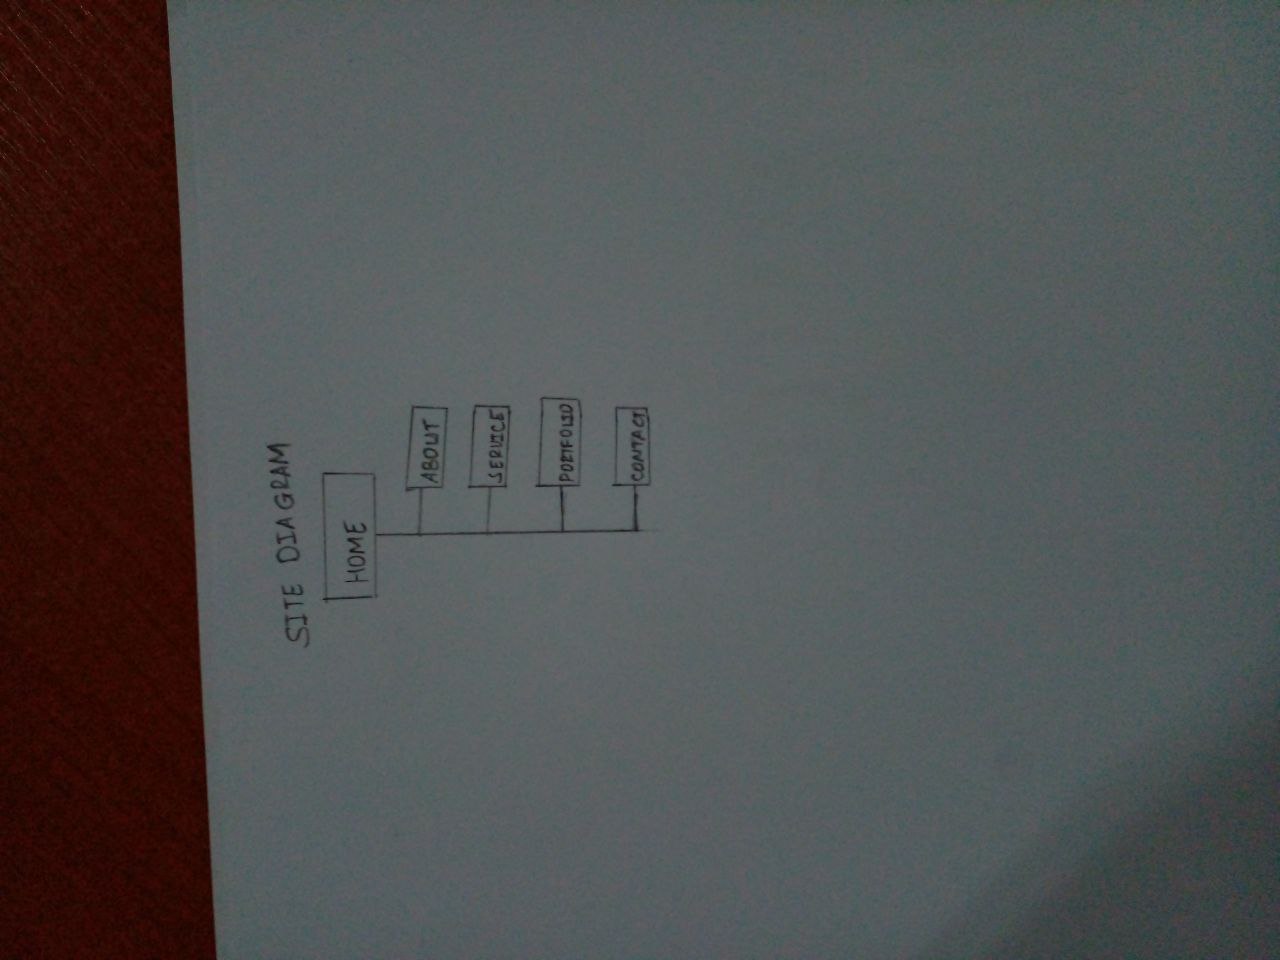 SITE DIAGRAM
HOME
ABOUT
SERVICE
PORTFOLIO
CONTACT